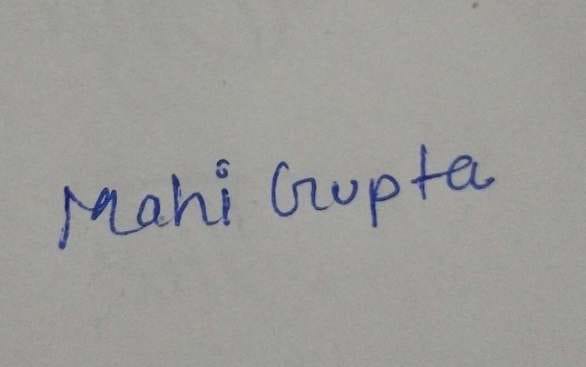 Mahi Gupta